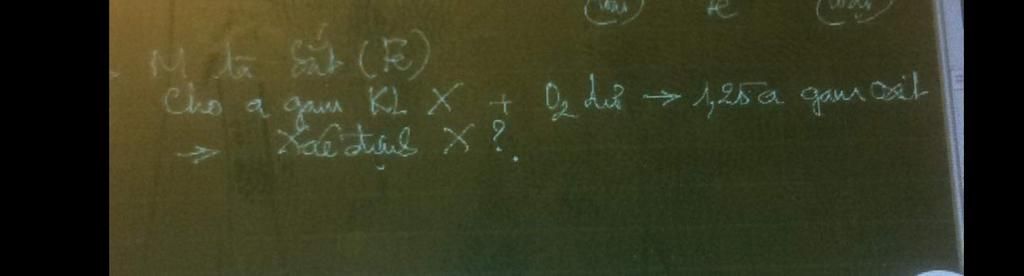 (loại) Fe (loại)
M là Sắt (Fe)
Cho a gam KL X + O2 dư → 1,25a gam oxit
→ Xác định X ?.